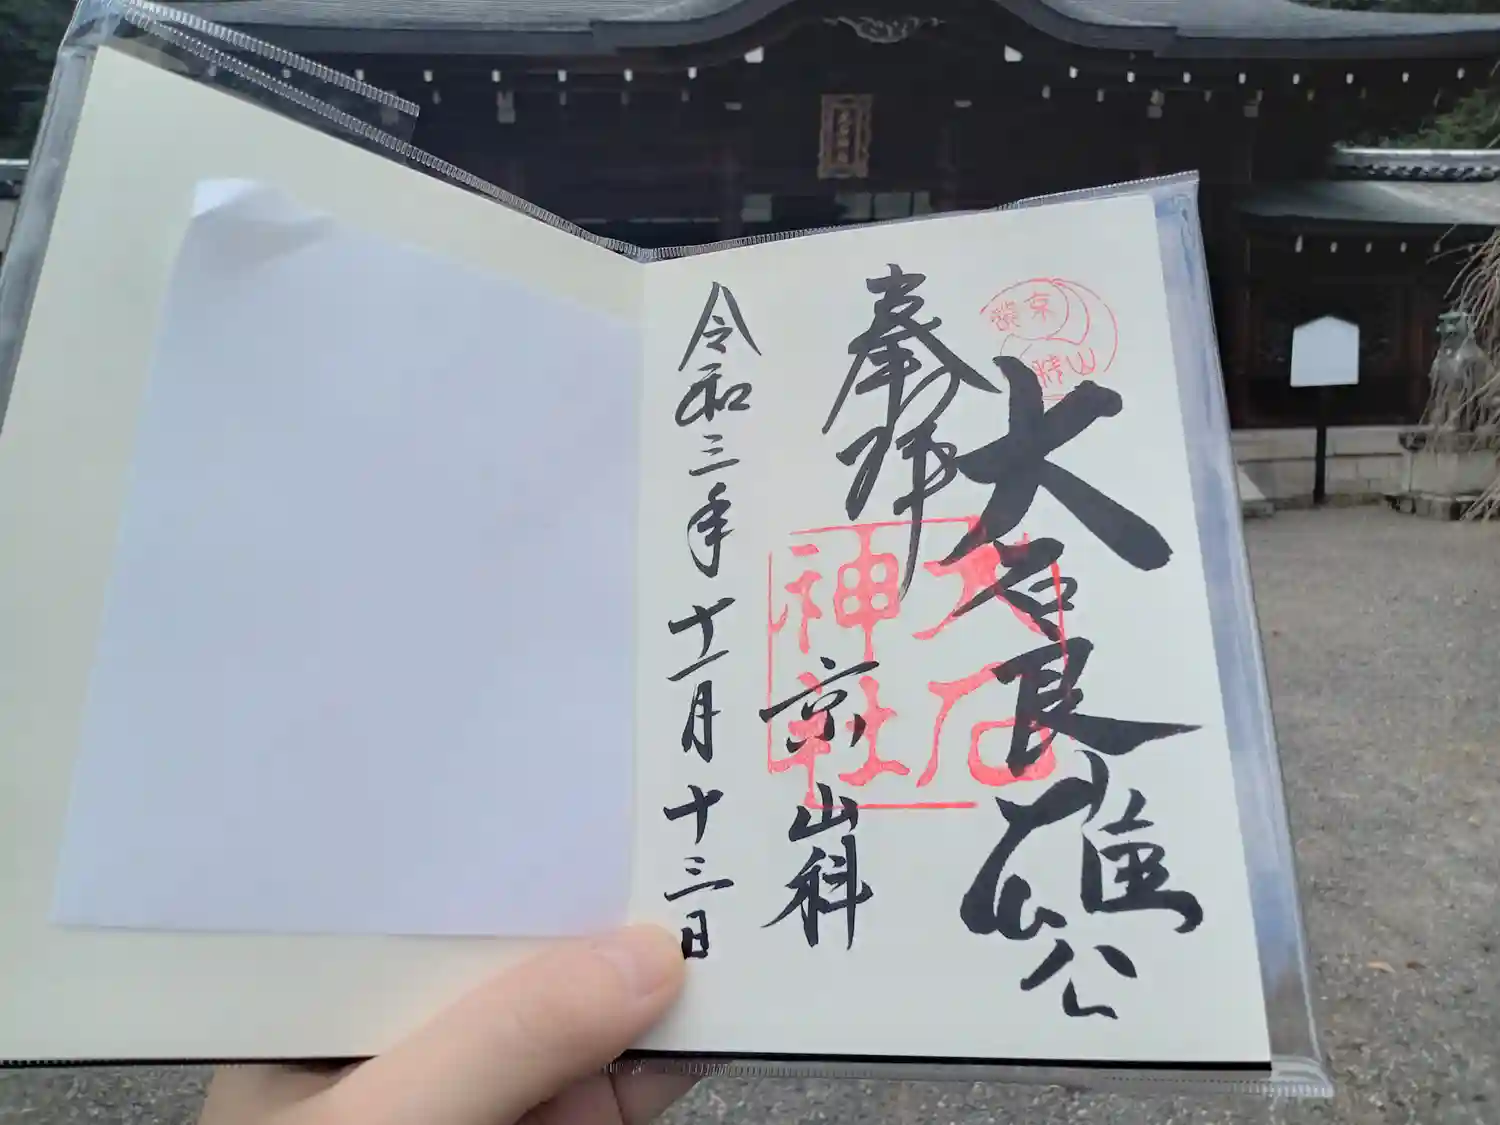 大石良雄公
奉拝
大石神社
京山科
令和三年十一月十三日